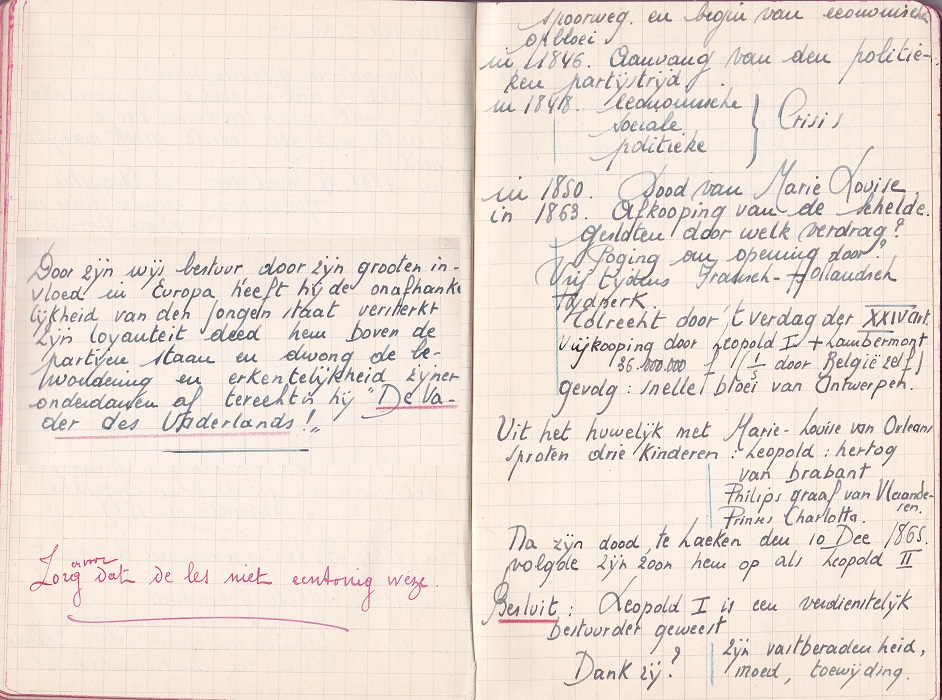 Door zijn wijs bestuur door zijn grooten in-
vloed in Europa heeft hij de onafhanke
lijkheid van den jongen staat versterkt
Zijn loyauteit deed hem boven de
partijen staan en dwong de be-
wondering en erkentelijkheid zijner
onderdanen af terecht is hij "De Va-
der des Vaderlands!"
ervoor
Zorg dat de les niet eentonig weze.
spoorweg. en begin van economischen
opbloei.
in 1846. Aanvang van den politie-
ken partijstrijd.
in 1848. economische
sociale
politieke
} Crisis
in 1850. Dood van Marie Louise.
in 1863. Afkooping van de Schelde.
gesloten door welk verdrag?
Poging om opening door?
Vrij tijdens Fransch-Hollandsch
Tijdperk.
Tolrecht door 't verdag der XXIV art.
Vrijkooping door Leopold I + Lambermont
36.000.000 f (1/3 door België 20 f)
gevolg: snelle bloei van Antwerpen.
Uit het huwelijk met Marie-Louise van Orleans
sproten drie kinderen: Leopold: hertog
van brabant
Philips graaf van Vlaande-
ren.
Prinses Charlotta.
Na zijn dood, te Laeken den 10 Dec 1865.
volgde zijn zoon hem op als Leopold II
Besluit: Leopold I is een verdienstelijk
bestuurder geweest
Dank zij? zijn vastberadenheid,
moed, toewijding.